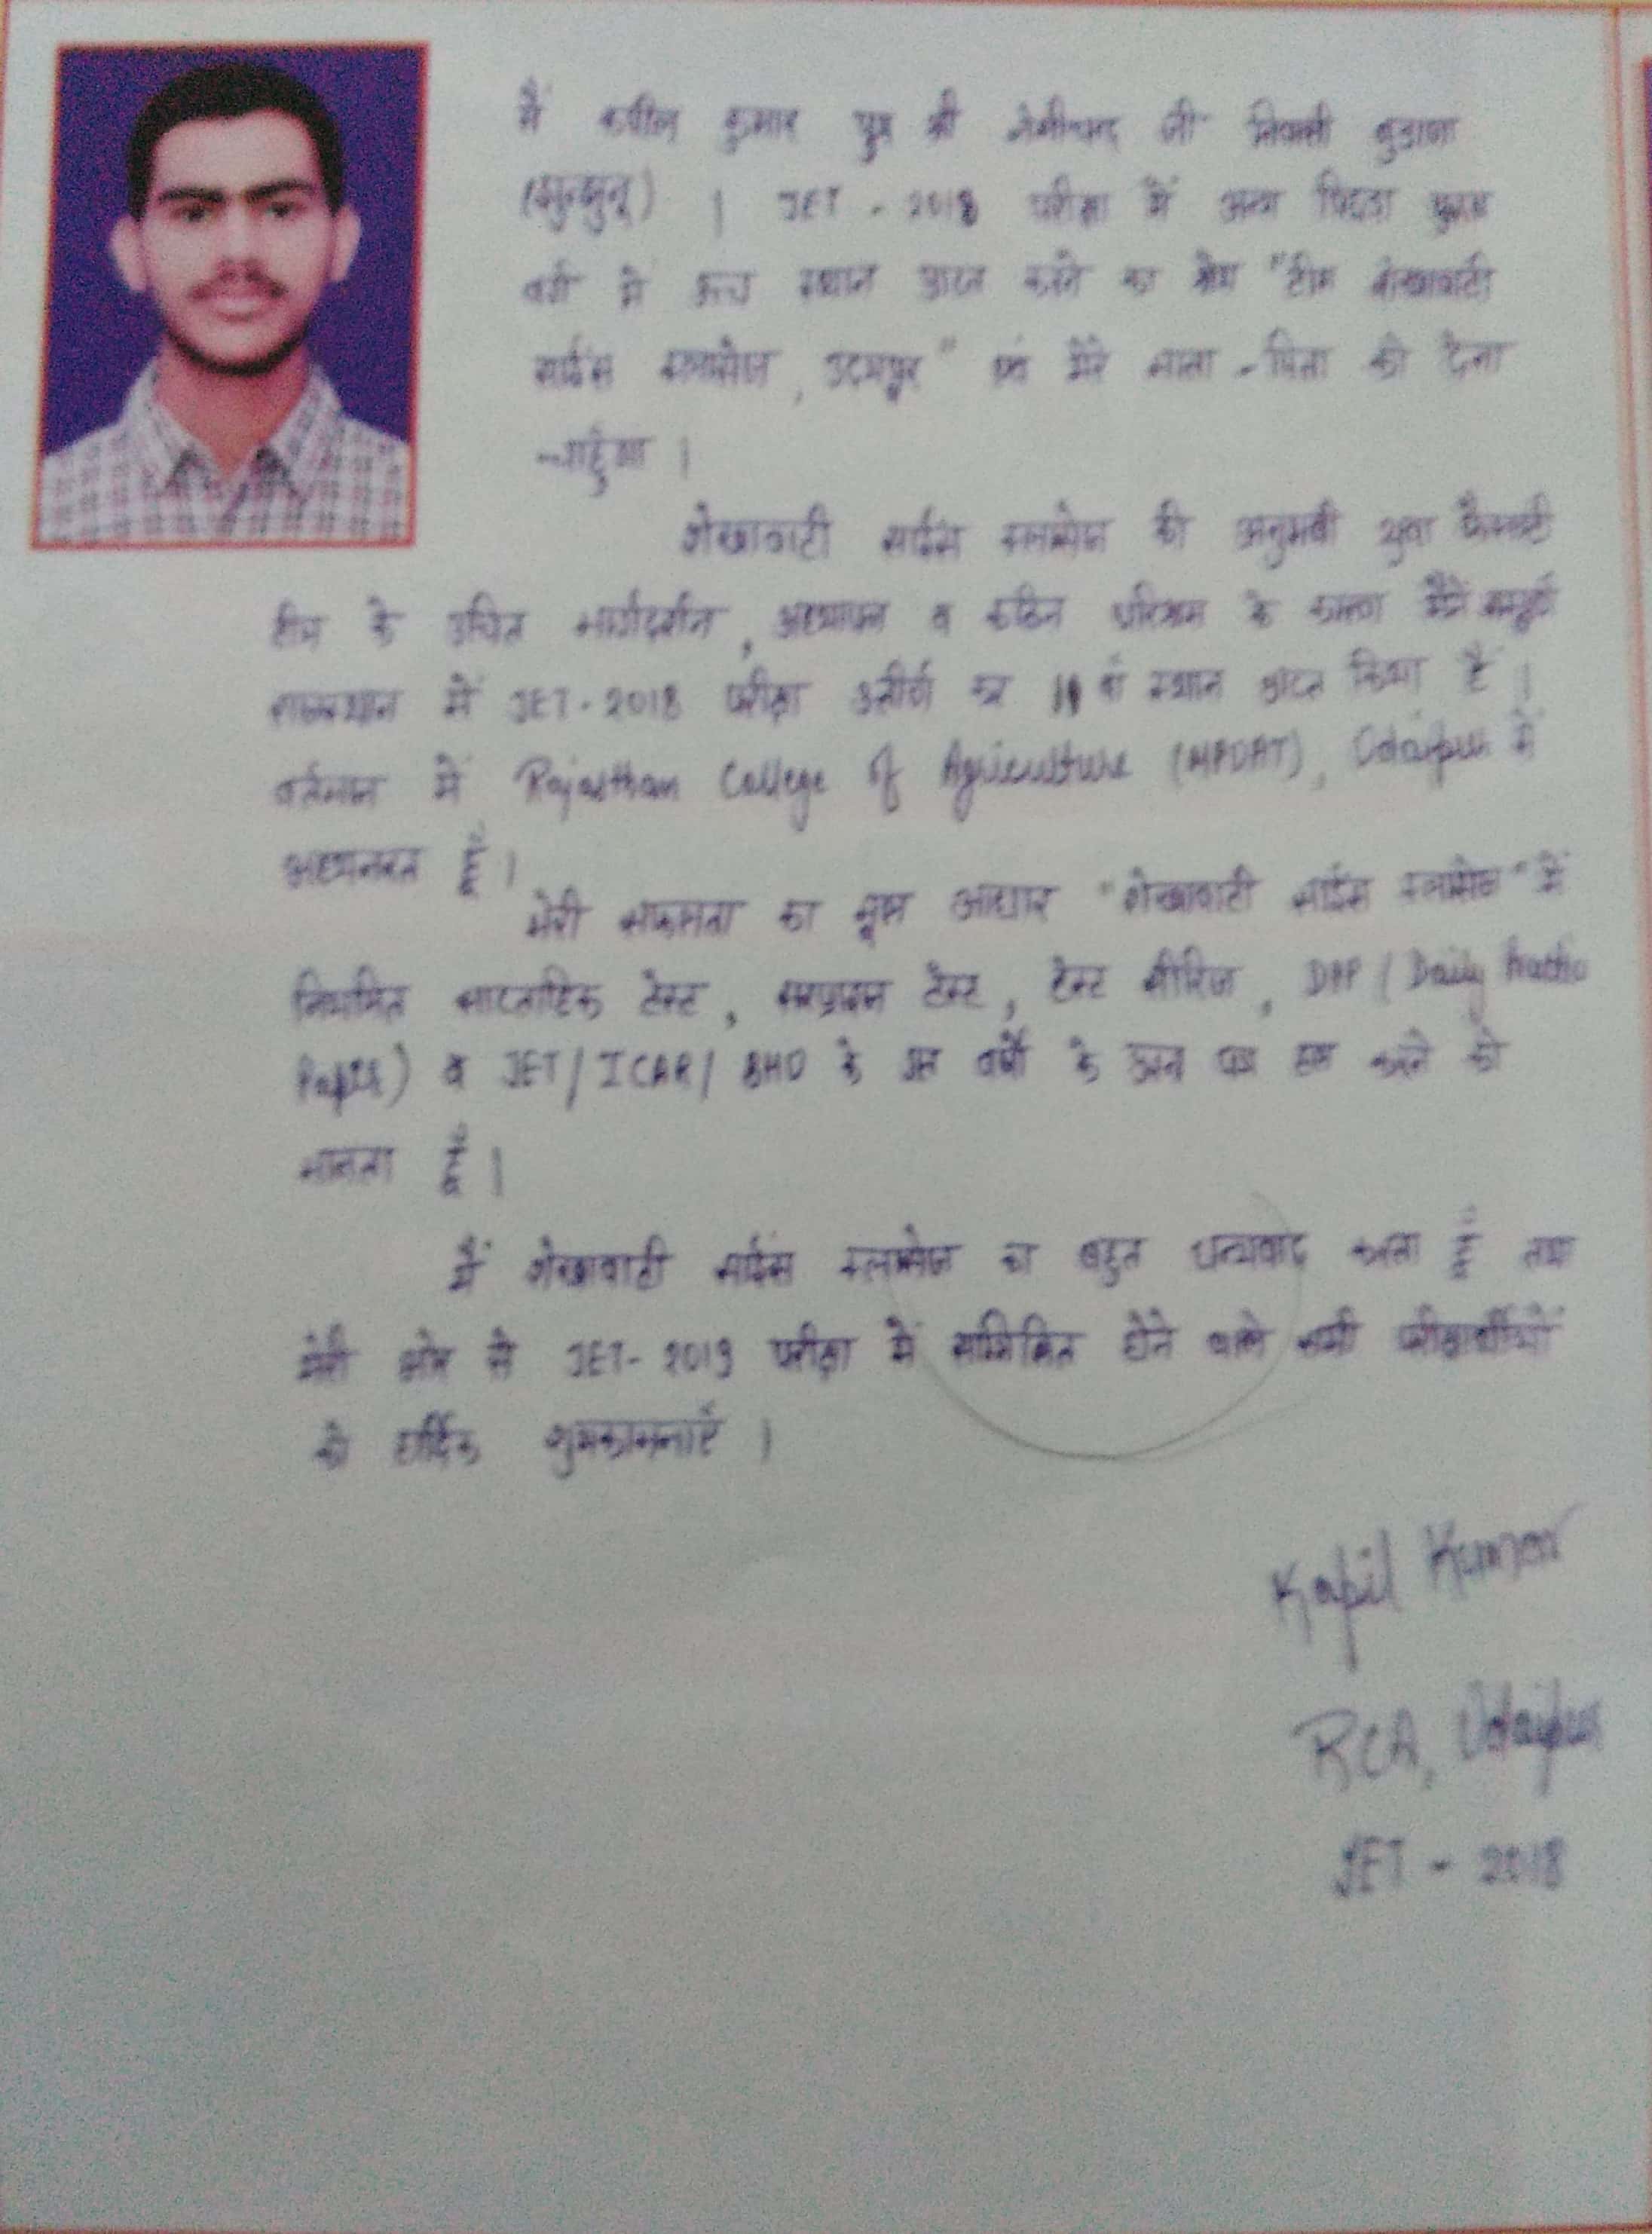 मैं कपील कुमार पुत्र श्री नेमीचन्द जी निवासी बुडाना
(झुन्झुनू) | JET - 2018 परीक्षा में अन्य पिछडा पुरूष
वर्ग में उच्च स्थान प्राप्त करने का श्रेय "टीम शेखावाटी
साईंस क्लासेज, उदयपुर" एवं मेरे माता - पिता को देना
चाहूंगा |
शेखावाटी साईंस क्लासेज की अनुभवी युवा फैकल्टी
टीम के उचित मार्गदर्शन, अध्यापन व कठिन परिश्रम के कारण मैंने सम्पूर्ण
राजस्थान में JET-2018 परीक्षा उतीर्ण कर वां स्थान प्राप्त किया है |
वर्तमान में Rajasthan College of Agriculture (MPUAT), Udaipur में
अध्यनरत हूँ |
मेरी सफलता का मूल आधार "शेखावाटी साईंस क्लासेज" में
नियमित साप्ताहिक टेस्ट, सरप्राइज टेस्ट, टेस्ट सीरिज, DPP (Daily Practice
Paper) व JET/ICAR/BHU के गत वर्षों के प्रश्न पत्र हल करने को
मानता हूँ |
मैं शेखावाटी साईंस क्लासेज का बहुत धन्यवाद करता हूँ तथा
मेरी ओर से JET-2019 परीक्षा में सम्मिलित होने वाले सभी परीक्षार्थीयों
को हार्दिक शुभकामनाएँ |
Kapil Kumar
RCA, Udaipur
JET - 2018